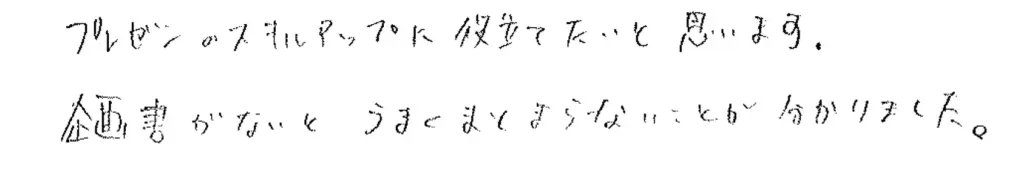 プレゼンのスキルアップに役立てたいと思います.
企画書がないと うまくまとまらないことが分かりました。